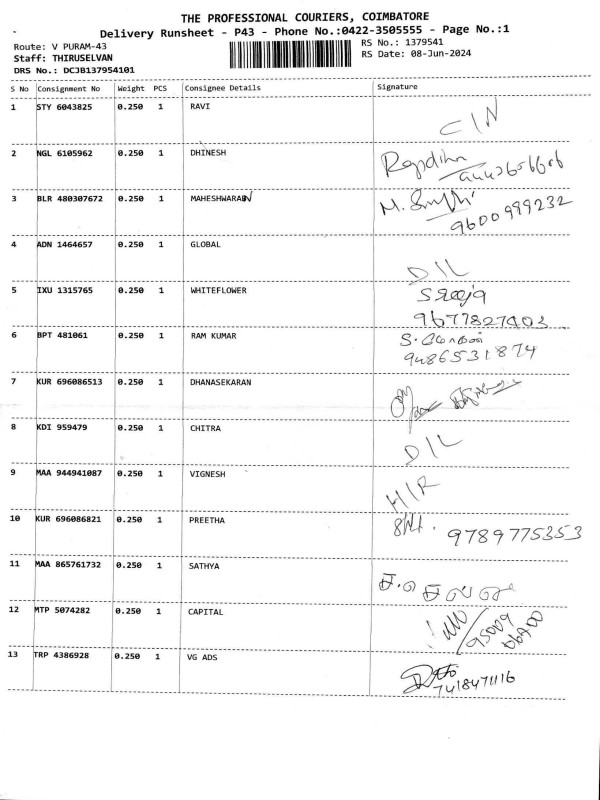 THE PROFESSIONAL COURIERS, COIMBATORE
Delivery Runsheet - P43 - Phone No.:0422-3505555 - Page No.:1
Route: V PURAM-43
RS No.: 1379541
Staff: THIRUSELVAN
RS Date: 08-Jun-2024
DRS No.: DCJB137954101
S No Consignment No Weight PCS Consignee Details Signature
1 STY 6043825 0.250 1 RAVI C/N
2 NGL 6105962 0.250 1 DHINESH
3 BLR 480307672 0.250 1 MAHESHWARAN M.
9600999232
4 ADN 1464657 0.250 1 GLOBAL D/L
5 IXU 1315765 0.250 1 WHITEFLOWER
9677827403
6 BPT 481061 0.250 1 RAM KUMAR
9486531874
7 KUR 696086513 0.250 1 DHANASEKARAN
8 KDI 959479 0.250 1 CHITRA D/L
9 MAA 944941087 0.250 1 VIGNESH H/R
10 KUR 696086821 0.250 1 PREETHA 9789775353
11 MAA 865761732 0.250 1 SATHYA
12 MTP 5074282 0.250 1 CAPITAL
13 TRP 4386928 0.250 1 VG ADS
7418471116